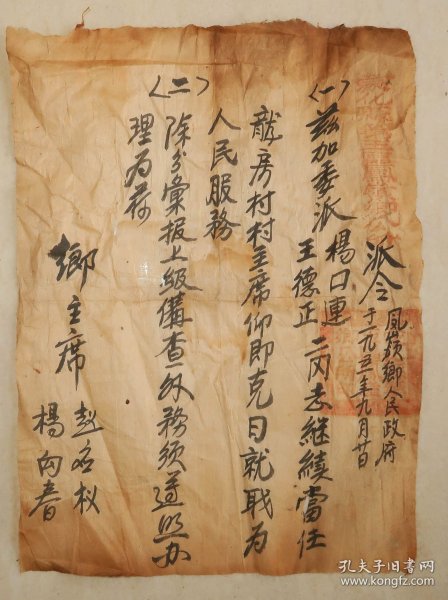 派令
凤岭乡人民政府
于一九五一年九月廿日
〈一〉兹加委派杨口连
王德正二同志继续当任
龙房村村主席仰即克日就职为
人民服务
〈二〉除分汇报上级备查外务须遵照办
理为荷
乡主席
赵
杨向春
孔夫子旧书网
www.kongfz.com